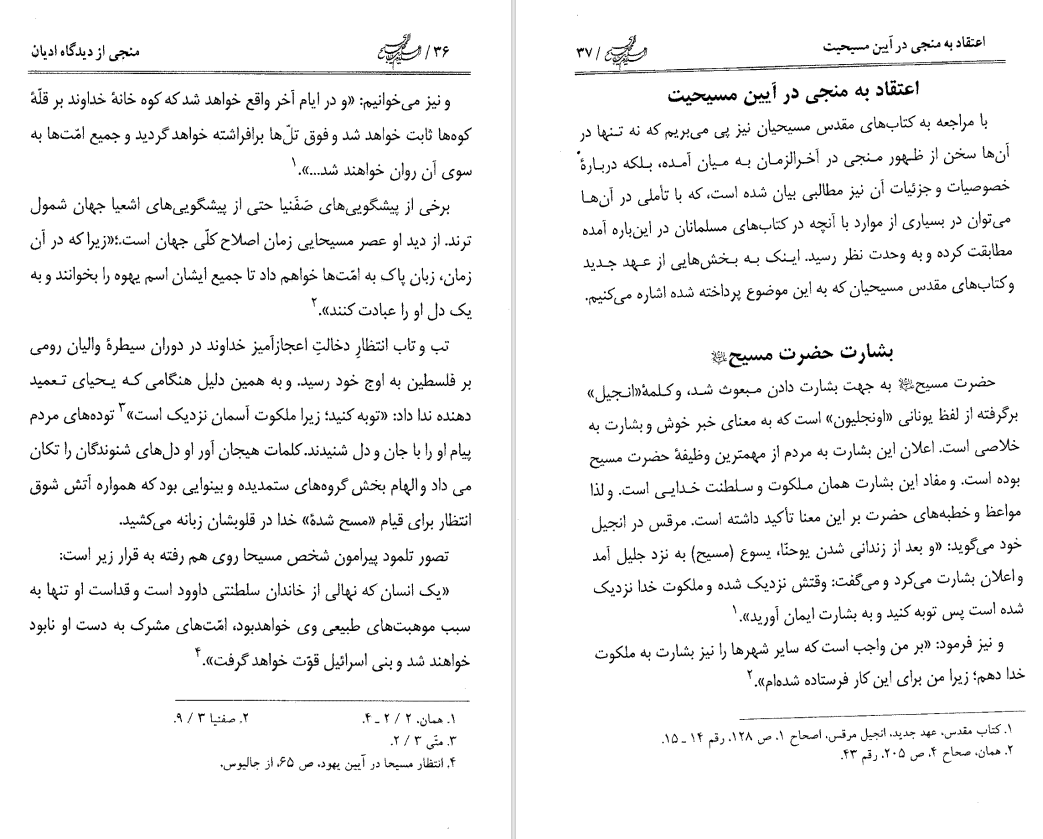 ۳۶ / منجی از دیدگاه ادیان
و نیز می‌خوانیم: «و در ایام آخر واقع خواهد شد که کوه خانهٔ خداوند بر قلّهٔ
کوه‌ها ثابت خواهد شد و فوق تلّ‌ها برافراشته خواهد گردید و جمیع امّت‌ها به
سوی آن روان خواهند شد...».۱
برخی از پیشگویی‌های صَفَنیا حتی از پیشگویی‌های اشعیا جهان شمول
ترند. از دید او عصر مسیحایی زمان اصلاح کلّی جهان است.؛«زیرا که در آن
زمان، زبان پاک به امّت‌ها خواهم داد تا جمیع ایشان اسم یهوه را بخوانند و به
یک دل او را عبادت کنند».۲
تب و تاب انتظارِ دخالتِ اعجازآمیز خداوند در دوران سیطرهٔ والیان رومی
بر فلسطین به اوج خود رسید. و به همین دلیل هنگامی که یحیای تعمید
دهنده ندا داد: «توبه کنید؛ زیرا ملکوت آسمان نزدیک است»۳ توده‌های مردم
پیام او را با جان و دل شنیدند. کلمات هیجان آور او دل‌های شنوندگان را تکان
می داد و الهام بخش گروه‌های ستمدیده و بینوایی بود که همواره آتش شوق
انتظار برای قیام «مسح شدهٔ» خدا در قلوبشان زبانه می‌کشید.
تصور تلمود پیرامون شخص مسیحا روی هم رفته به قرار زیر است:
«یک انسان که نهالی از خاندان سلطنتی داوود است و قداست او تنها به
سبب موهبت‌های طبیعی وی خواهدبود، امّت‌های مشرک به دست او نابود
خواهند شد و بنی اسرائیل قوّت خواهد گرفت».۴
۱. همان، ۲ / ۲ ـ ۴. ۲. صفنیا ۳ / ۹.
۳. متّی ۳ / ۲.
۴. انتظار مسیحا در آیین یهود، ص ۶۵، از جالیوس.
اعتقاد به منجی در آیین مسیحیت / ۳۷
اعتقاد به منجی در آیین مسیحیت
با مراجعه به کتاب‌های مقدس مسیحیان نیز پی می‌بریم که نه تنها در
آن‌ها سخن از ظهور منجی در آخرالزمان به میان آمده، بلکه دربارهٔ
خصوصیات و جزئیات آن نیز مطالبی بیان شده است، که با تأملی در آن‌ها
می‌توان در بسیاری از موارد با آنچه در کتاب‌های مسلمانان در این‌باره آمده
مطابقت کرده و به وحدت نظر رسید. اینک به بخش‌هایی از عهد جدید
و کتاب‌های مقدس مسیحیان که به این موضوع پرداخته شده اشاره می‌کنیم.
بشارت حضرت مسیح
حضرت مسیح به جهت بشارت دادن مبعوث شد، و کلمهٔ«انجیل»
برگرفته از لفظ یونانی «اونجلیون» است که به معنای خبر خوش و بشارت به
خلاصی است. اعلان این بشارت به مردم از مهمترین وظیفهٔ حضرت مسیح
بوده است. و مفاد این بشارت همان ملکوت و سلطنت خدایی است. و لذا
مواعظ و خطبه‌های حضرت بر این معنا تأکید داشته است. مرقس در انجیل
خود می‌گوید: «و بعد از زندانی شدن یوحنّا، یسوع (مسیح) به نزد جلیل آمد
و اعلان بشارت می‌کرد و می‌گفت: وقتش نزدیک شده و ملکوت خدا نزدیک
شده است پس توبه کنید و به بشارت ایمان آورید».۱
و نیز فرمود: «بر من واجب است که سایر شهرها را نیز بشارت به ملکوت
خدا دهم؛ زیرا من برای این کار فرستاده شده‌ام».۲
۱. کتاب مقدس، عهد جدید، انجیل مرقس، اصحاح ۱، ص ۱۲۸، رقم ۱۴ ـ ۱۵.
۲. همان، صحاح ۴، ص ۲۰۵، رقم ۴۳.